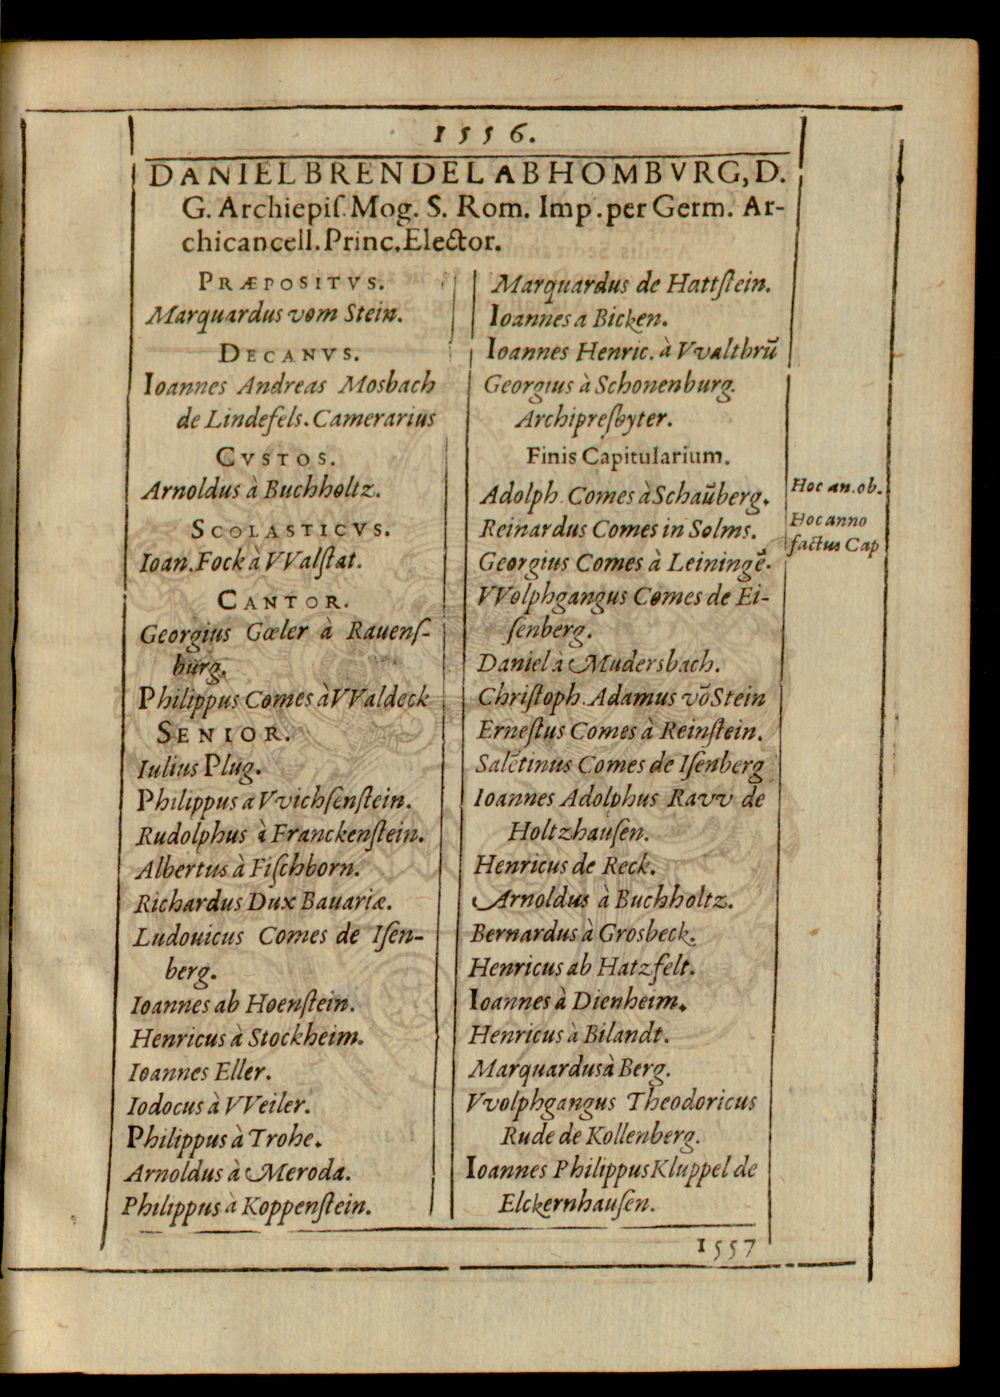 1556.
DANIEL BRENDEL AB HOMBVRG, D.
G. Archiepiſ. Mog. S. Rom. Imp. per Germ. Ar-
chicancell. Princ. Elector.
PRÆPOSITVS.
Marquardus vom Stein.
DECANVS.
Ioannes Andreas Mosbach
de Lindefels. Camerarius
CVSTOS.
Arnoldus à Buchholtz.
SCOLASTICVS.
Ioan. Fock à VValſtat.
CANTOR.
Georgius Gœler à Rauenſ-
burg.
Philippus Comes à VValdeck
SENIOR.
Iulius Plug.
Philippus a Vvichſenſtein.
Rudolphus à Franckenſtein.
Albertus à Fiſchborn.
Richardus Dux Bauariæ.
Ludouicus Comes de Iſen-
berg.
Ioannes ab Hoenſtein.
Henricus à Stockheim.
Ioannes Eller.
Iodocus à VVeiler.
Philippus à Trohe.
Arnoldus à Meroda.
Philippus à Koppenſtein.
Marquardus de Hattſtein.
Ioannes a Bicken.
Ioannes Henric. à Vvalthrū
Georgius à Schonenburg.
Archipreſbyter.
Finis Capitularium.
Adolph. Comes à Schaūberg.
Reinardus Comes in Solms.
Georgius Comes à Leiningē.
VVolphgangus Comes de Ei-
ſenberg.
Daniel à Mudersbach.
Chriſtoph. Adamus vō Stein
Erneſtus Comes à Reinſtein.
Salētinus Comes de Iſenberg
Ioannes Adolphus Ravv de
Holtzhauſen.
Henricus de Reck.
Arnoldus à Buchholtz.
Bernardus à Grosbeck.
Henricus ab Hatzfelt.
Ioannes à Dienheim.
Henricus à Bilandt.
Marquardus à Berg.
Vvolphgangus Theodoricus
Rude de Kollenberg.
Ioannes Philippus Kluppel de
Elckernhauſen.
Hoc an. ob.
Hoc anno
factus Cap
1557